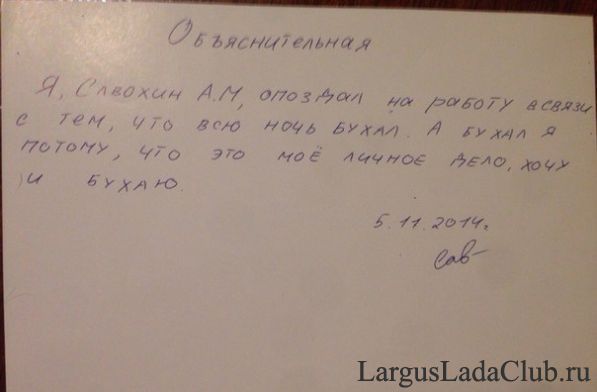 Объяснительная
Я, Савохин А.М, опоздал на работу всвязи
с тем, что всю ночь бухал. А бухал я
потому, что это моё личное дело, хочу
и бухаю.
5.11.2014г.
Сав
LargusLadaClub.ru